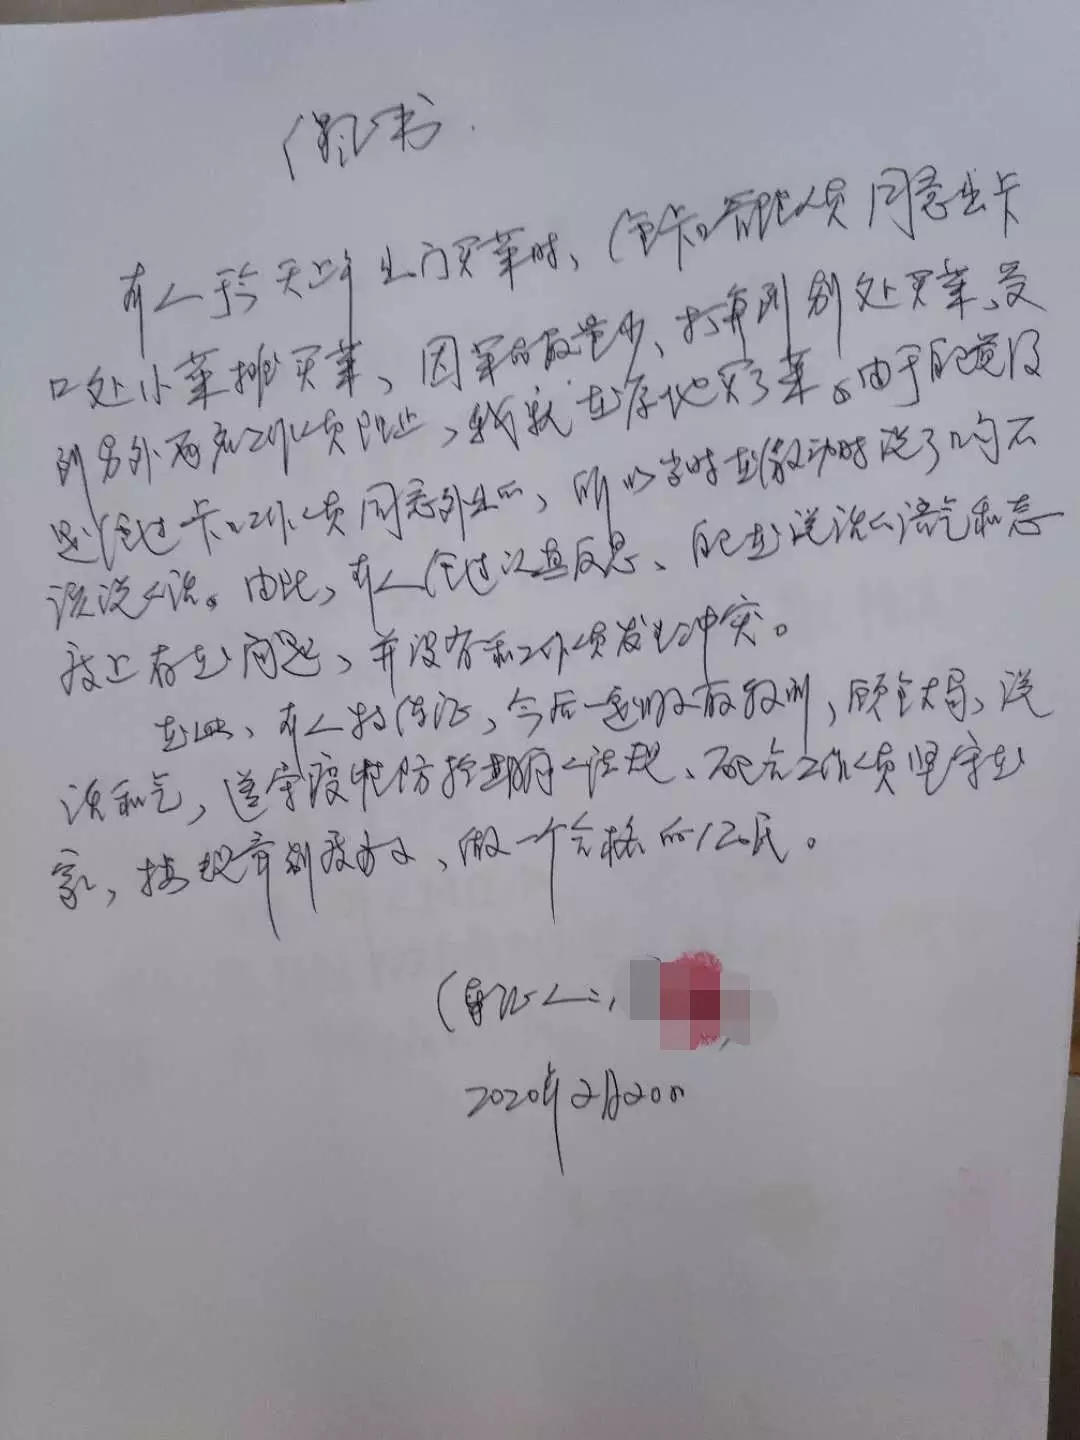 保证书
本人于今天上午出门买菜时，经卡口管理人员同意出卡
口处小菜摊买菜，因菜品数量少，打算到别处买菜，受
到另外两名工作人员阻止，我就在原地买了菜。由于自觉得
是经过卡口工作人员同意外出的，所以当时在激动时说了句不
该说的话。由此，本人经过认真反思，自己在说话的语气和态
度上存在问题，并没有和工作人员发生冲突。
在此，本人特保证，今后一定吸取教训，顾全大局，说
话和气，遵守疫情防控期间的法规，配合工作人员坚守在
家，按规章制度办事，做一个合格的公民。
保证人：
2020年2月20日